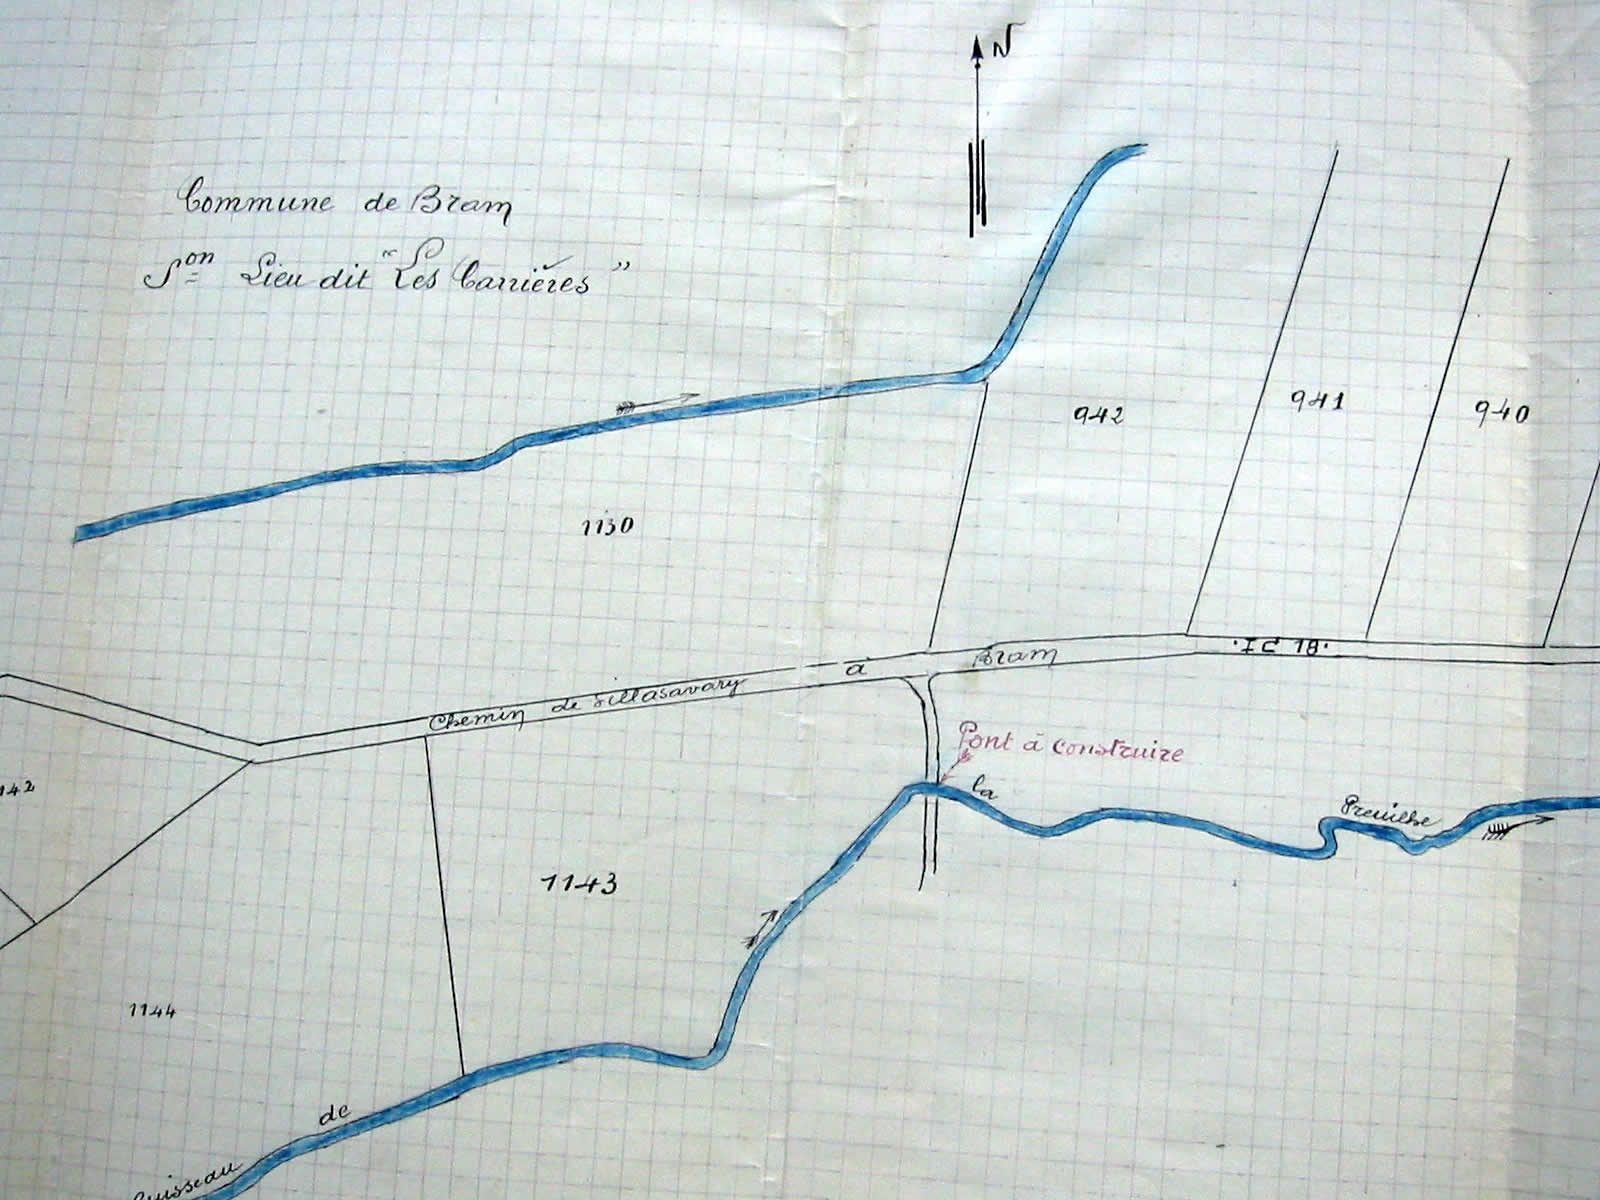 N
Commune de Bram
Son Lieu dit "Les Carrières"
942
941
940
1130
Chemin de Villasavary à Bram
I C 18.
Pont à construire
142
1143
1144
Ruisseau de la Preuilhe